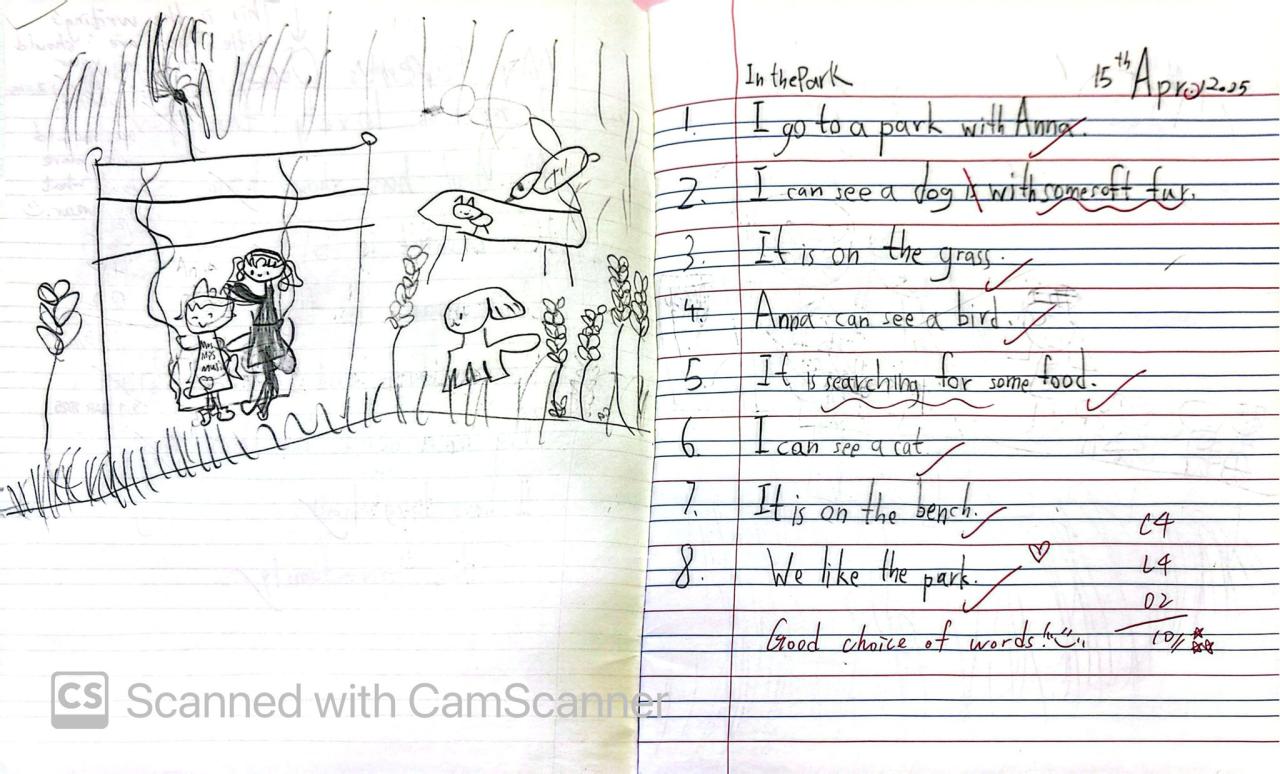 In the Park
15th Apr 2025
1. I go to a park with Anna.
2. I can see a dog with some soft fur.
3. It is on the grass.
4. Anna can see a bird.
5. It is searching for some food.
6. I can see a cat.
7. It is on the bench.
8. We like the park.
C4
L4
02
10
Good choice of words!
CS Scanned with CamScanner